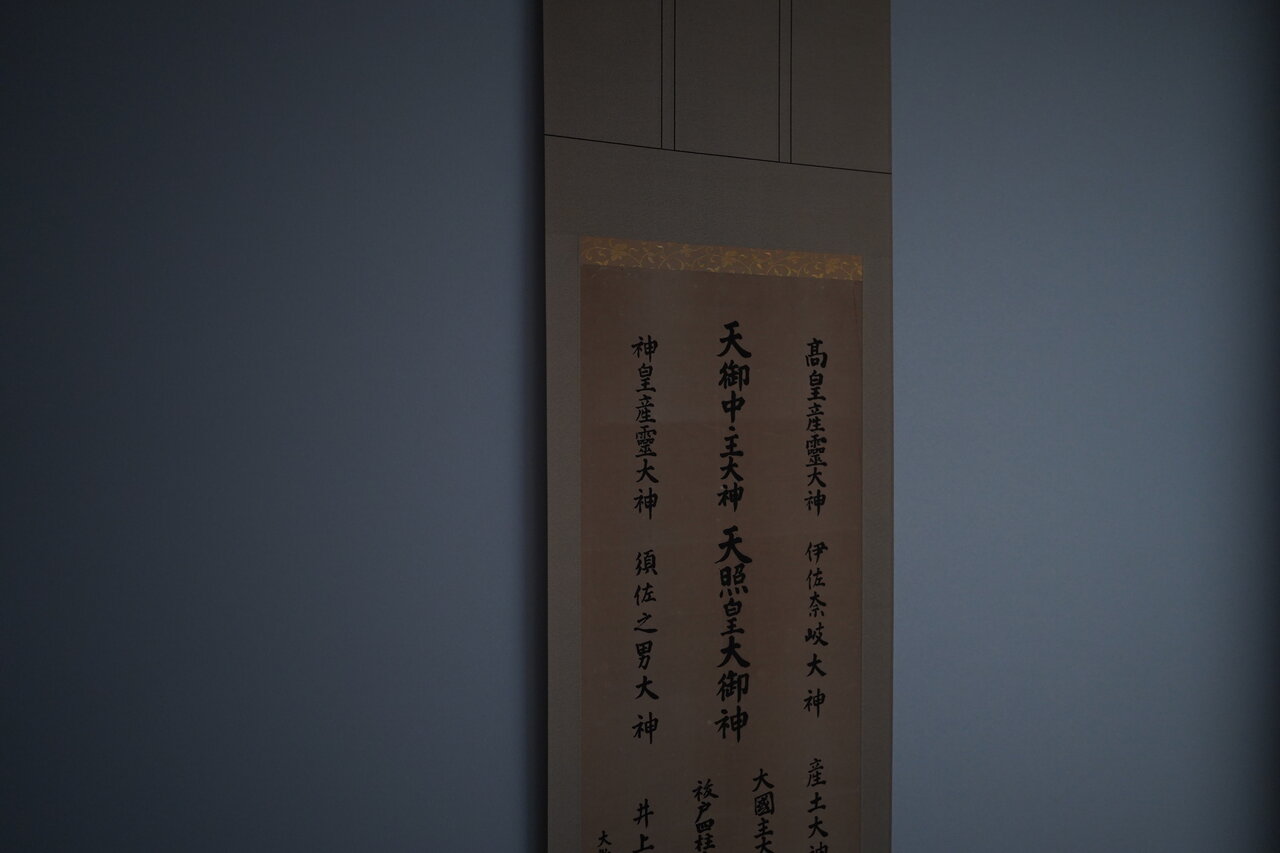 高皇産靈大神　伊佐奈岐大神　産土大神
大國主大
天御中主大神　天照皇大御神
祓戸四柱
神皇産靈大神　須佐之男大神　井上
大